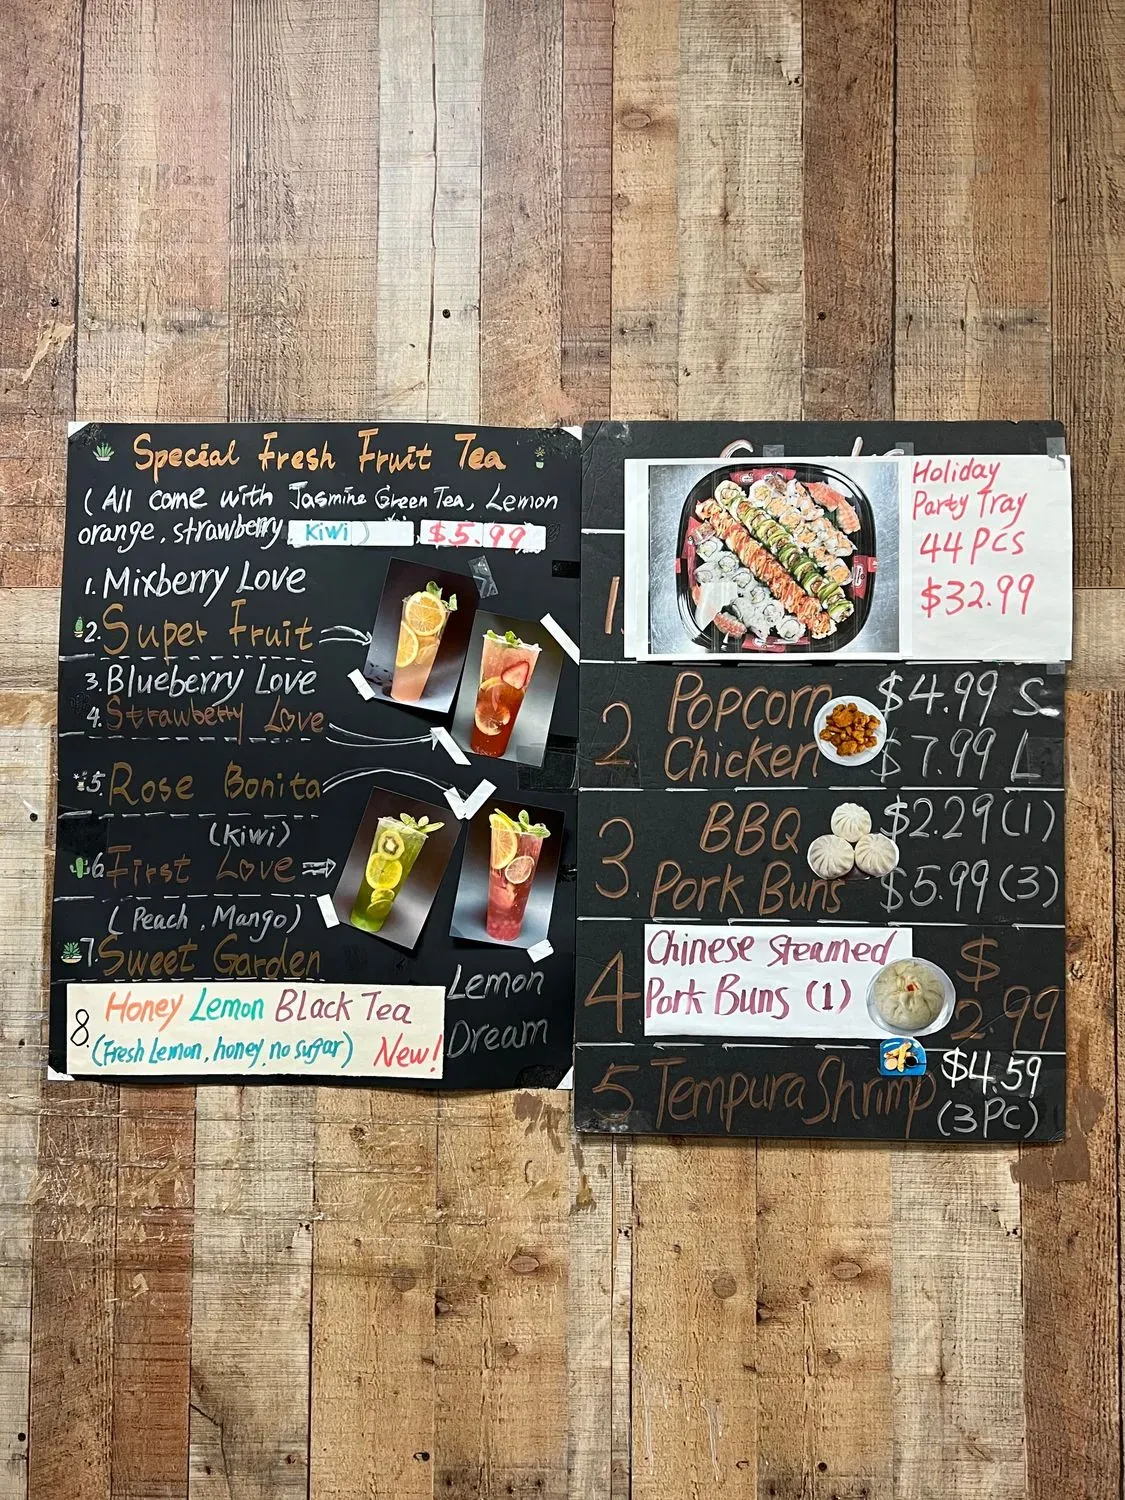 Special Fresh Fruit Tea
(All come with Jasmine Green Tea, Lemon
orange, strawberry KiWi) $5.99
1. Mixberry Love
2. Super Fruit
3. Blueberry Love
4. Strawberry Love
5. Rose Bonita
(Kiwi)
6 First Love
(Peach, Mango)
7. Sweet Garden
8. Honey Lemon Black Tea
(Fresh Lemon, honey, no sugar) New!
Lemon
Dream
Holiday
Party Tray
44 PCS
$32.99
1.
2 Popcorn $4.99 S
Chicken $7.99 L
3. BBQ $2.29 (1)
Pork Buns $5.99 (3)
4 Chinese Steamed
Pork Buns (1)
$
2.99
5 Tempura Shrimp $4.59
(3PC)